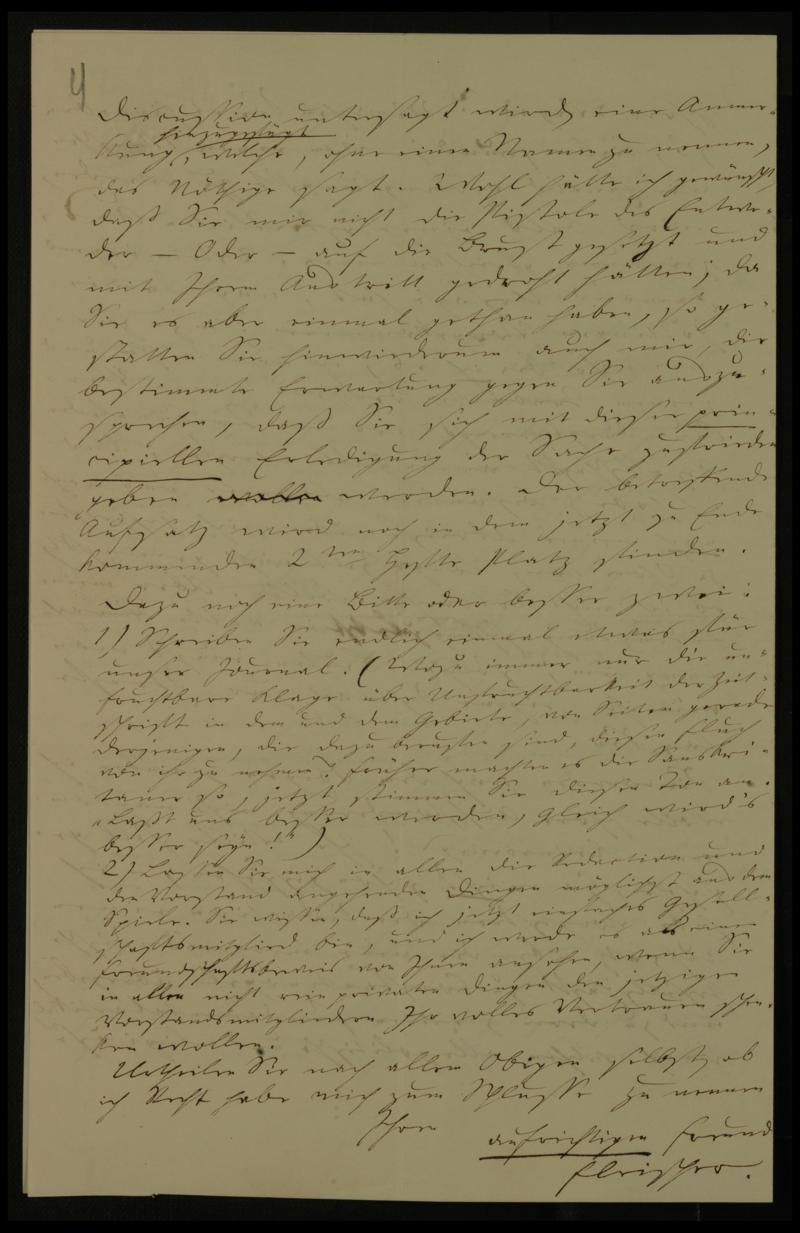 4
Discussion untersagt wird, eine Anmer-
hinzugefügt
kung, welche, ohne einen Namen zu nennen,
das Nöthige sagt. Wohl hätte ich gewünscht,
daß Sie mir nicht die Pistole des Entwe-
der – Oder – auf die Brust gesetzt und
mit Ihrem Austritt gedroht hätten; da
Sie es aber einmal gethan haben, so ge-
statten Sie hinwiederum auch mir, die
bestimmte Erwartung gegen Sie auszu-
sprechen, daß Sie sich mit dieser prin-
cipiellen Erledigung der Sache zufrieden
geben wollen werden. Der betreffende
Aufsatz wird noch in dem jetzt zu Ende
kommenden 2ten Hefte Platz finden.
Dazu noch eine Bitte oder besser zwei:
1) Schreiben Sie endlich einmal etwas für
unser Journal. (Wozu immer nur die un-
fruchtbare Klage über Unfruchtbarkeit der Zeit-
schrift in dem und dem Gebiete, von Seiten gerade
derjenigen, die dazu berufen sind, diesen Fluch
von ihr zu nehmen? Früher machten es die Sanskri-
taner so, jetzt stimmen Sie diesen Ton an.
„Laßt uns besser werden, gleich wird's
besser seyn!")
2) Lassen Sie mich in allen die Redaction und
den Vorstand angehenden Dingen möglichst aus dem
Spiele. Sie wissen, daß ich jetzt einfaches Gesell-
schaftsmitglied bin, und ich werde es als einen
Freundschaftsbeweis von Ihnen ansehen, wenn Sie
in allen nicht rein privaten Dingen den jetzigen
Vorstandsmitgliedern Ihr volles Vertrauen schen-
ken wollen.
Urtheilen Sie nach allem Obigen selbst, ob
ich Recht habe mich zum Schlusse zu nennen
Ihren
aufrichtigen Freund
Fleischer.